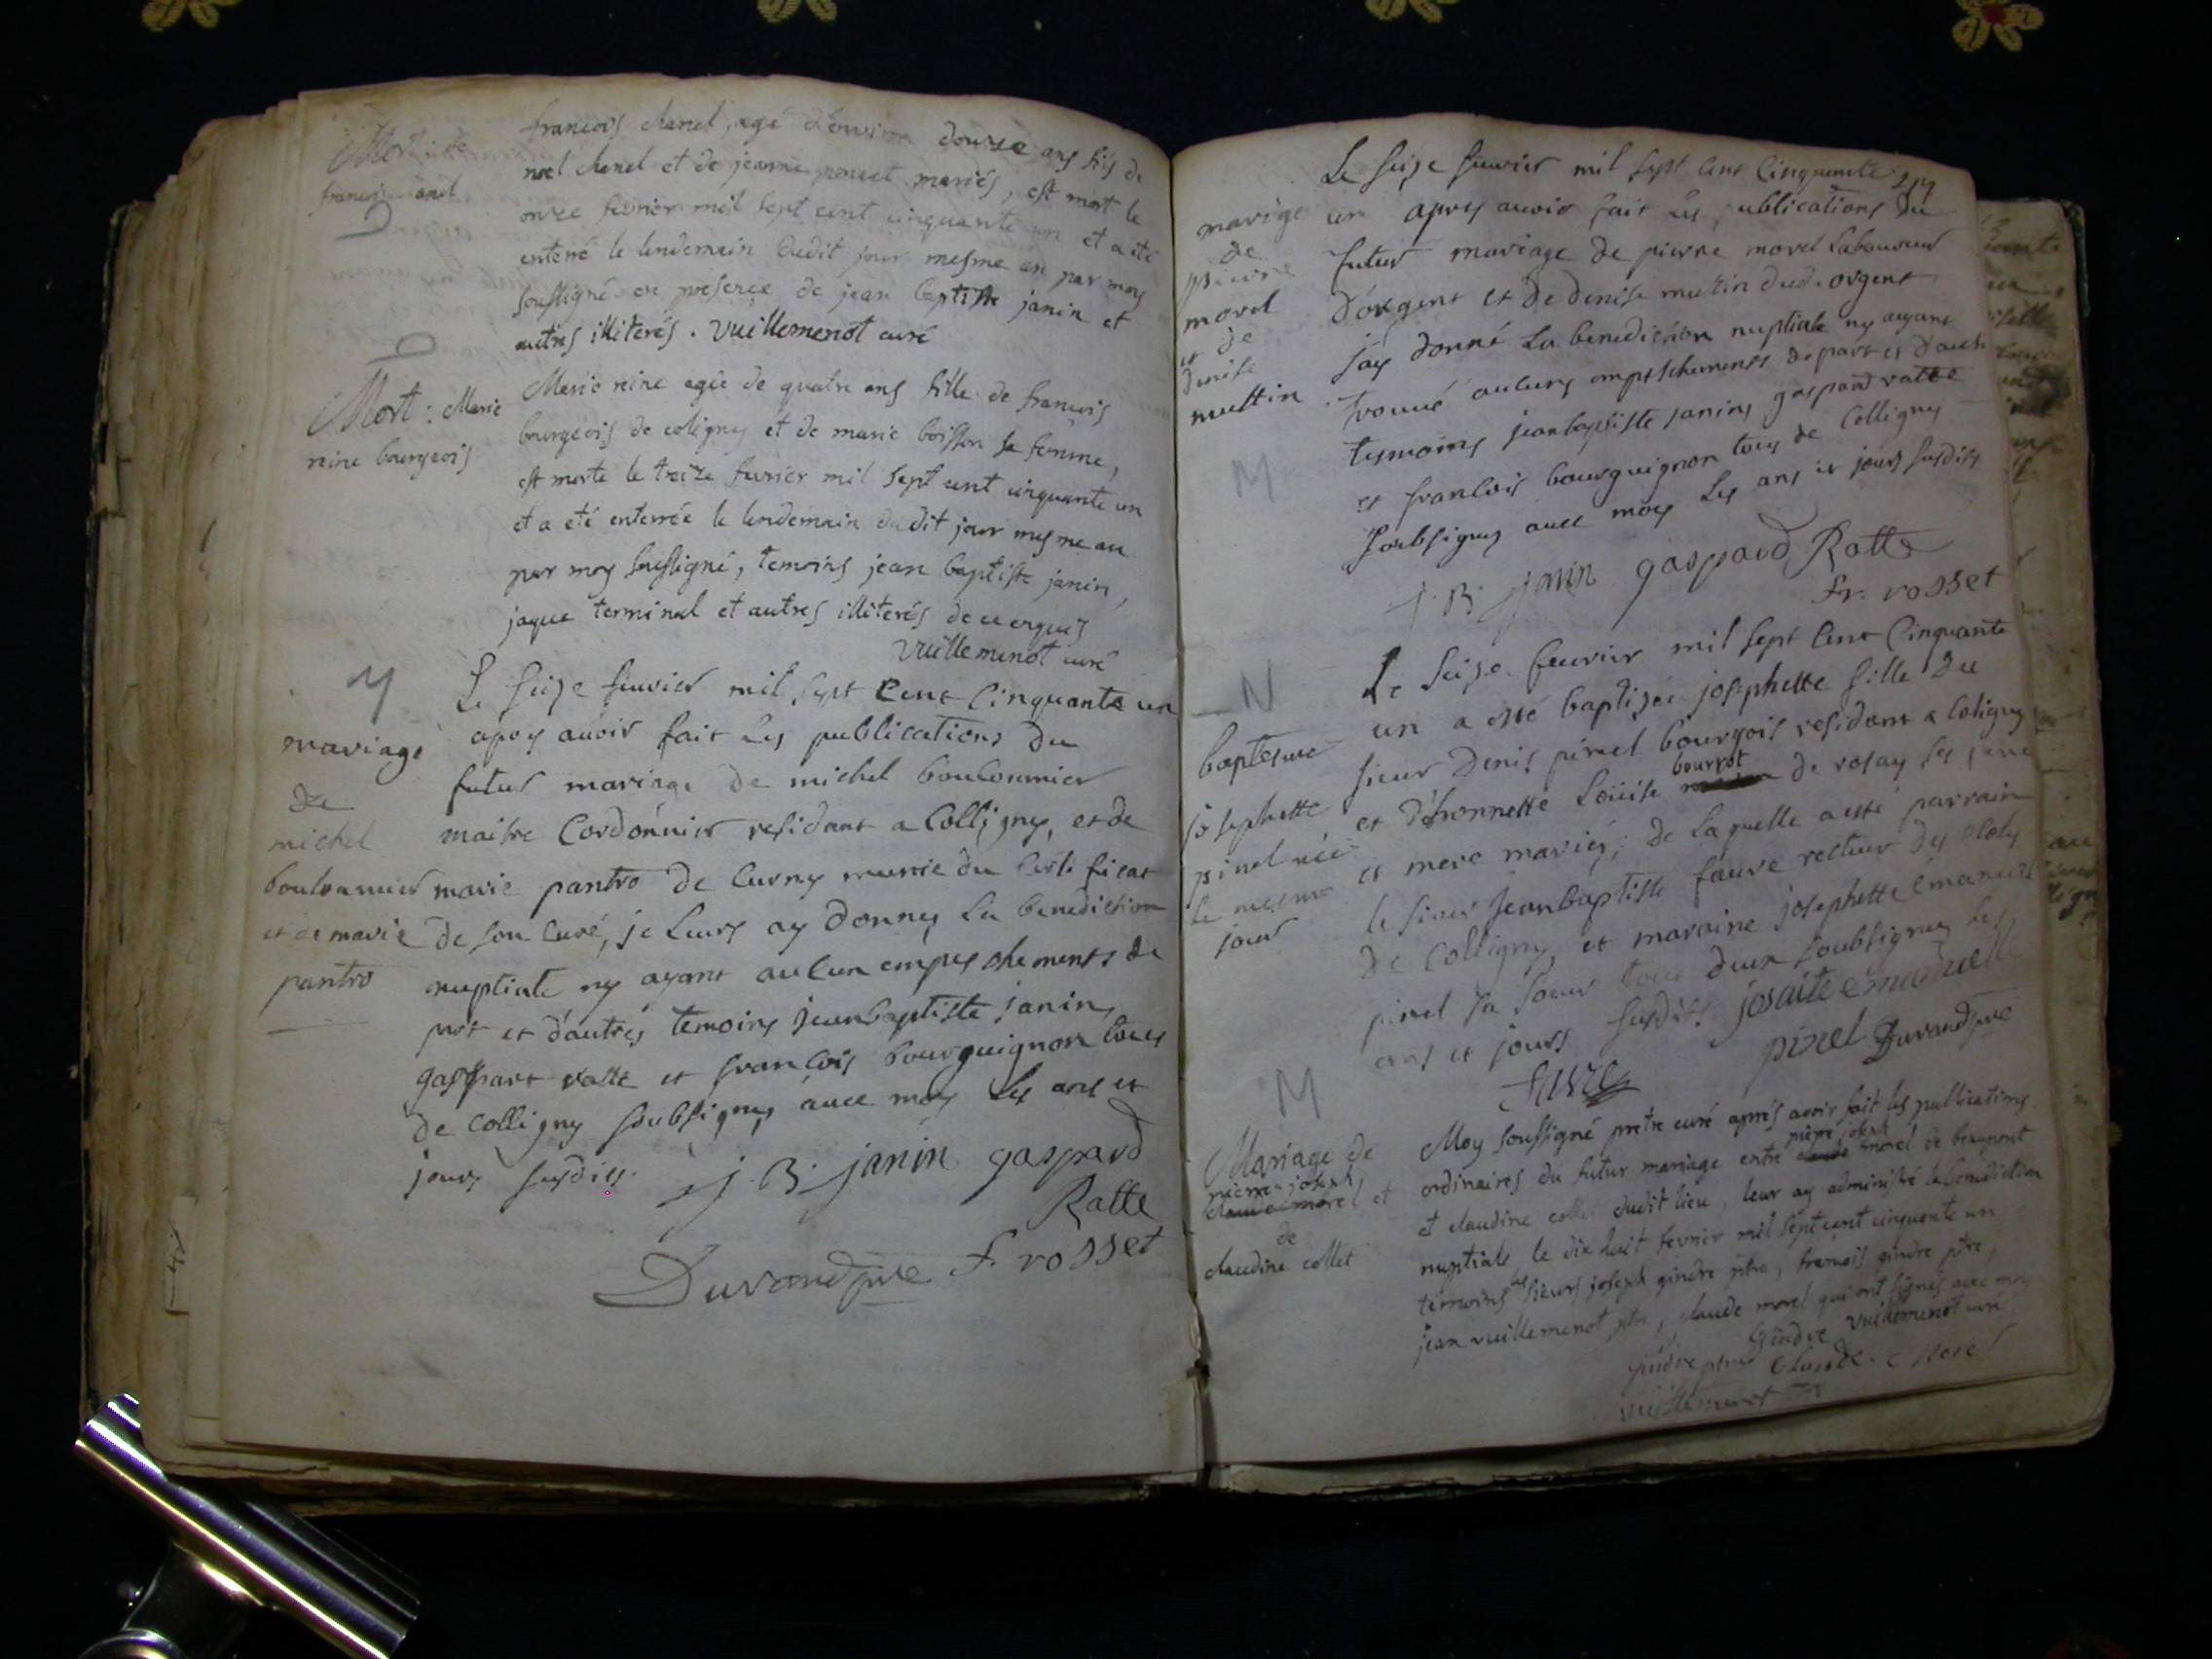 Mort : de
françois
françois chanel, agé d'environ douze ans fils de
noel chanel et de jeanne poncet mariés, est mort le
onze fevrier mil sept cent cinquante un et a été
enterré le lendemain dudit jour mesme an par moy
soussigné en presence de jean baptiste janin et
autres illiterés. vuillemenot curé
D
Mort : Marie
reine bourgeois
Marie reine agée de quatre ans fille de francois
bourgeois de coligny et de marie boisson sa femme,
est morte le treize fevrier mil sept cent cinquante un
et a eté enterrée le lendemain du dit jour mesme an
par moy soussigné, temoins jean baptiste janin,
jaque terminal et autres illiterés de ce enquis
vuillemenot curé
M
mariage
de
michel
bouloumier
et de marie
pantro
Le seize feuvier mil sept cent cinquante un
apres auoir fait les publications du
futur mariage de michel bouloumier
maitre Cordonnier residant a Colligny, et de
marie pantro de Curny munie du certificat
de son curé, je leurs ay donnez la benediction
nuptiale ny ayant aucun empeschements de
part et d'autres temoins jeanbaptiste janin,
gaspart ratte et francois bourguignon tous
de colligny soubsignez auec moy les ans et
jours susdits.
J. B. janin gaspard
Ratte
Durand pre f rosset
217
mariage
de
pierre
morel
et de
denise
muttin
M
Le seize feuvier mil sept cent cinquante
un apres auoir fait les publications du
futur mariage de pierre morel laboureur
d'orgent et de denise mutin dud. orgent
jay donné la benediction nuptiale ny ayant
trouué aucuns empeschements de part et d'autre
tesmoins jeanbaptiste janin, gaspard ratte
et francois bourguignon tous de Colligny
soubsignez auec moy les ans et jours susdits
J. B. janin gaspard Ratte
fr. rosset
N
baptesme
josephette
pinel née
le mesme
jour
Le seize feuvrier mil sept cent cinquante
un a esté baptisée josephette fille du
sieur Denis pinel bourgois residant a Coligny
et d'honnette Loüise bourrot de rosay ses pere
et mere mariés; de laquelle a esté parrain
le sieur Jeanbaptiste faure recteur des ecoles
de Colligny, et maraine josephette emanuel
pinel sa soeur tous deux soubsignez les
ans et jours susdits josaite emanuell
pinel Durand pre
faure
M
Mariage de
pierre-joseph
claude morel et
de
claudine collet
Moy soussigné pretre curé aprés avoir fait les publications
ordinaires du futur mariage entre pierre joseph morel de beaumont
et claudine collet dudit lieu, leur ay administré la benediction
nuptiale le dix huit fevrier mil sept cent cinquante un
temoins les sieurs joseph gindre ptre, francois gindre ptre,
jean vuillemenot ptre, claude morel qui ont signés avec moy
Gindre vuillemenot curé
gindre ptre Claude morel
vuillemenot